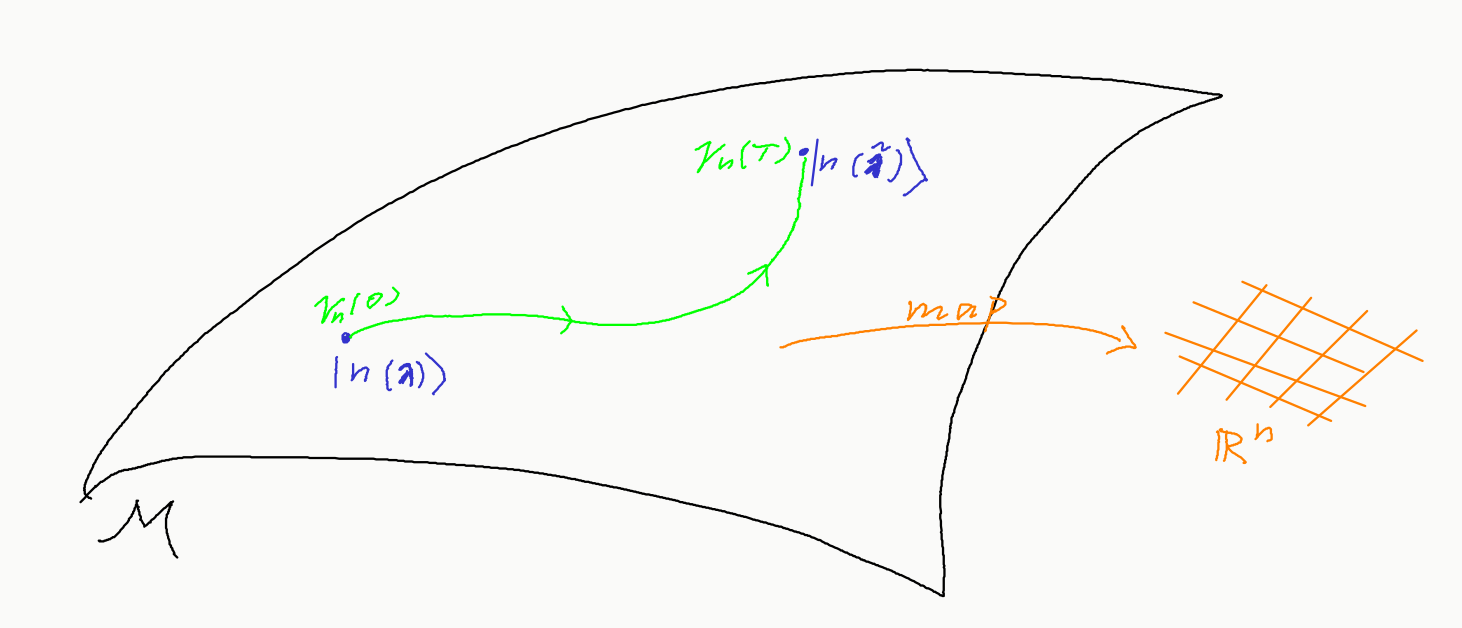 γₙ(T) |n(λ̃)⟩
γₙ(0)
|n(λ)⟩
map
ℝⁿ
M